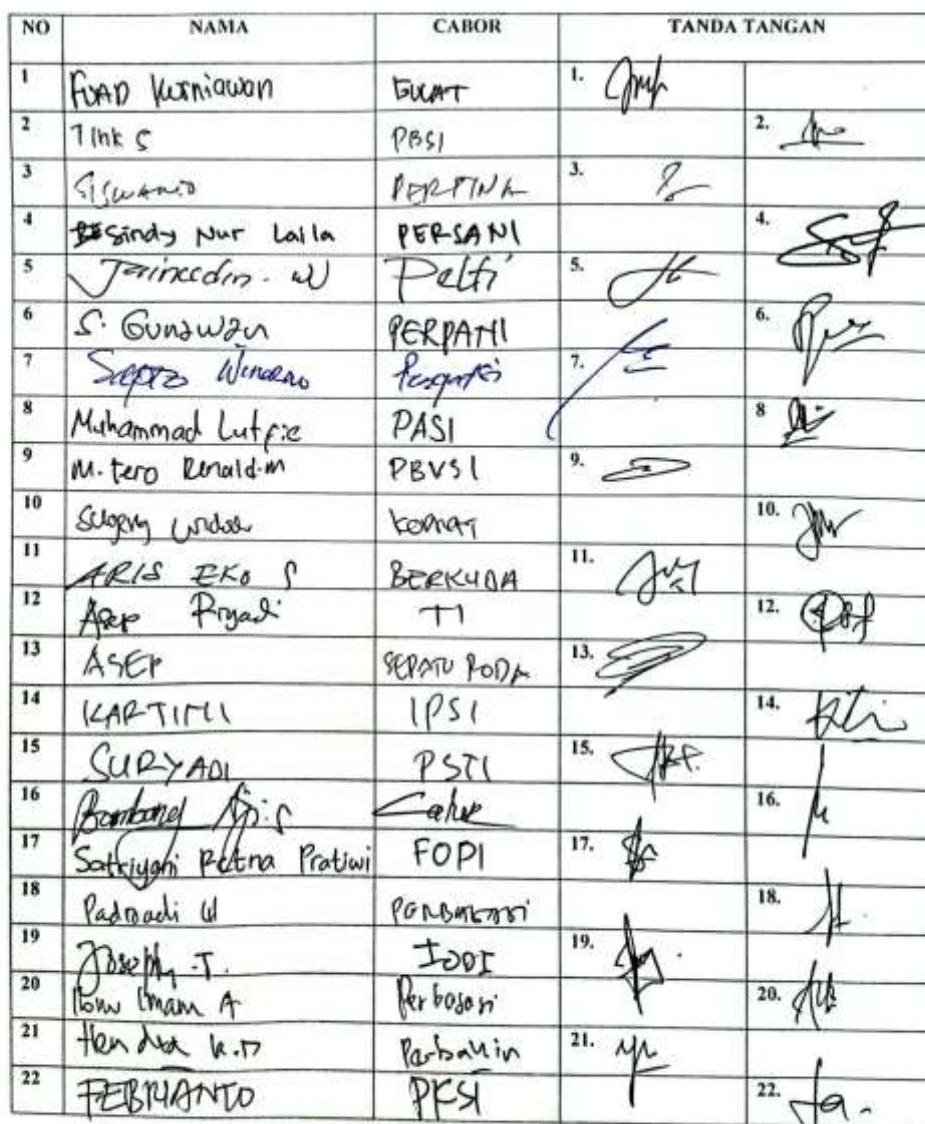 NO NAMA CABOR TANDA TANGAN
1 FUAD Kurniawan GULAT 1.
2 TINK S PBSI 2.
3 SISWANTO PERPINA 3.
4 Sindy Nur Laila PERSANI 4.
5 Pelti 5.
6 S. Gunawan PERPANI 6.
7 Sapto Winarno 7.
8 Muhammad Lutfie PASI 8
9 M. Fero Renaldi.m PBVSI 9.
10 Sugeng 10.
11 ARIS EKO S BERKUDA 11.
12 Asep Riyadi TI 12.
13 ASEP SEPATU RODA 13.
14 KARTINI IPSI 14.
15 SURYADI PSTI 15.
16 Bambang 16.
17 Satriyani Retna Pratiwi FOPI 17.
18 Padmadi W 18.
19 Joseph .T. IODI 19.
20 Ibnu Imam A Perbasasi 20.
21 Hendra K.D Perbakin 21.
22 FEBRIANTO PKSI 22.